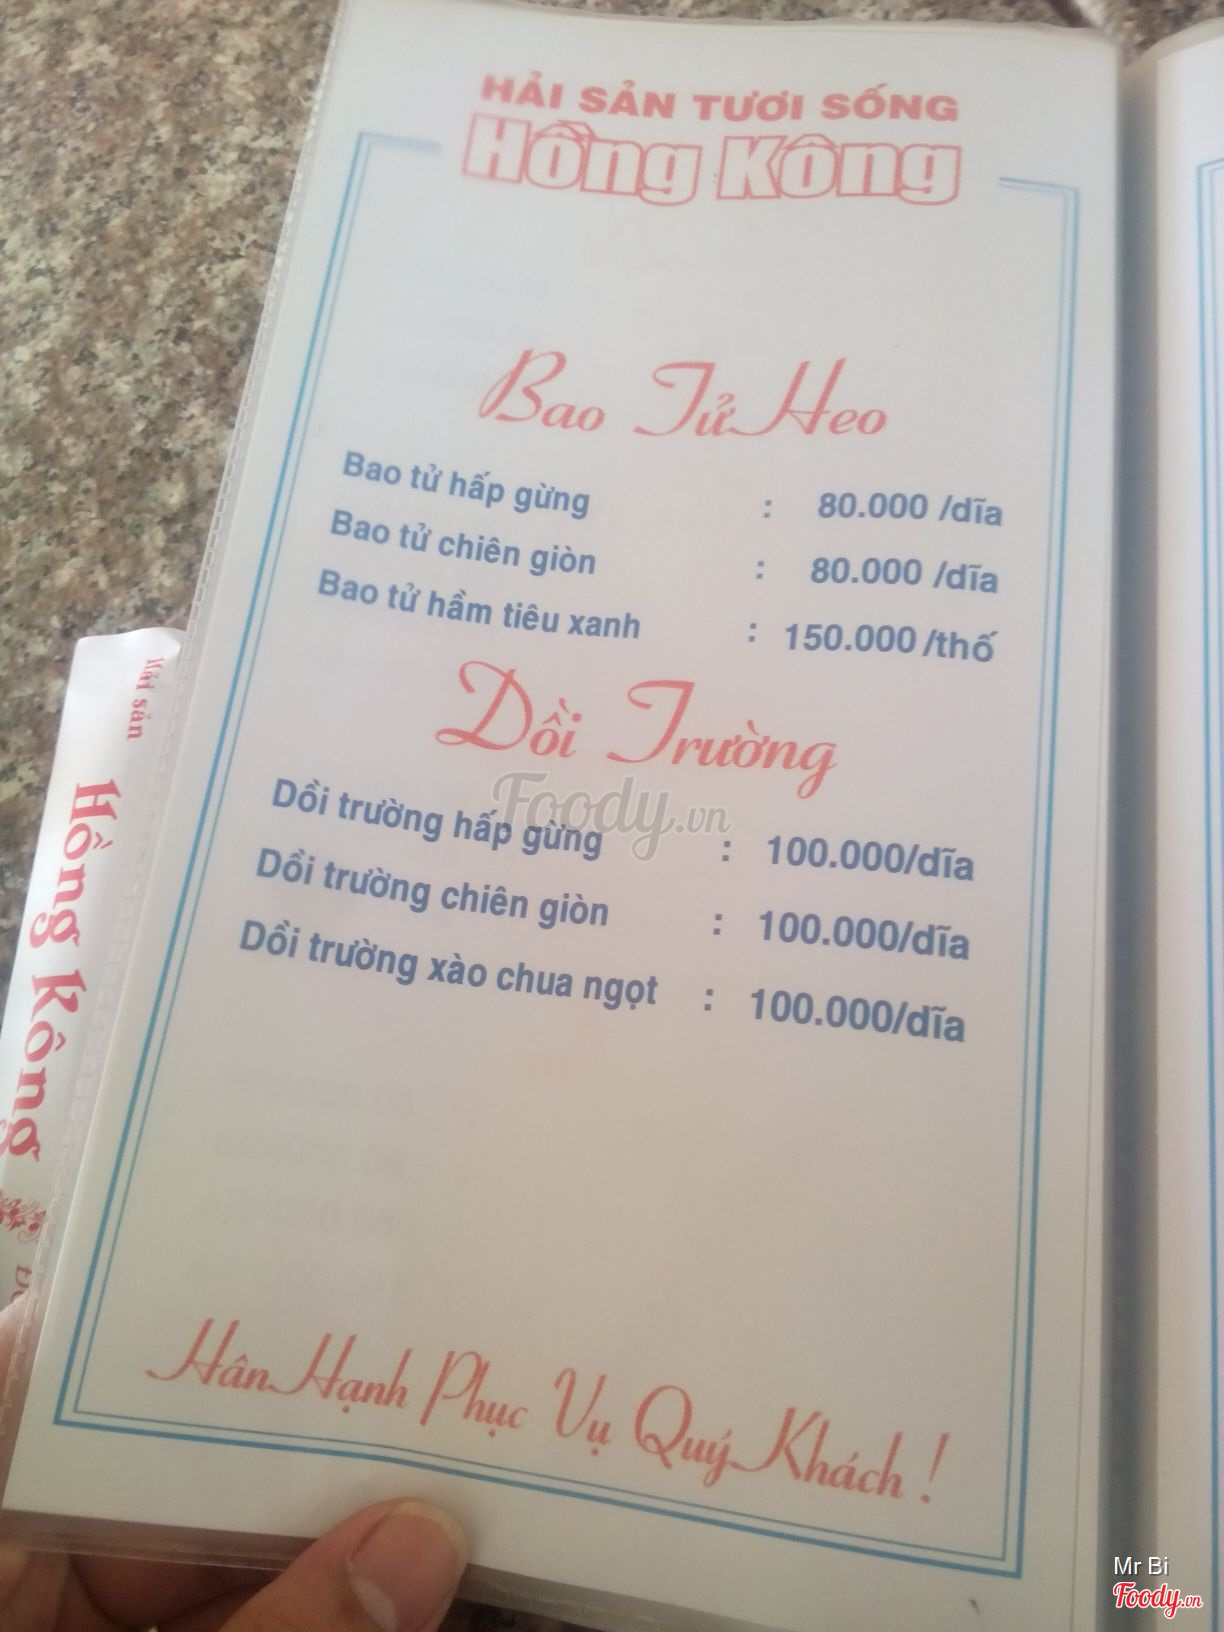 HẢI SẢN TƯƠI SỐNG
Hồng Kông
Bao Tử Heo
Bao tử hấp gừng : 80.000 /dĩa
Bao tử chiên giòn : 80.000 /dĩa
Bao tử hầm tiêu xanh : 150.000 /thố
Dồi Trường
Dồi trường hấp gừng : 100.000/dĩa
Dồi trường chiên giòn : 100.000/dĩa
Dồi trường xào chua ngọt : 100.000/dĩa
Hân Hạnh Phục Vụ Quý Khách !
Hải sản
Hồng Kông
Foody.vn
Mr Bi
Foody.vn